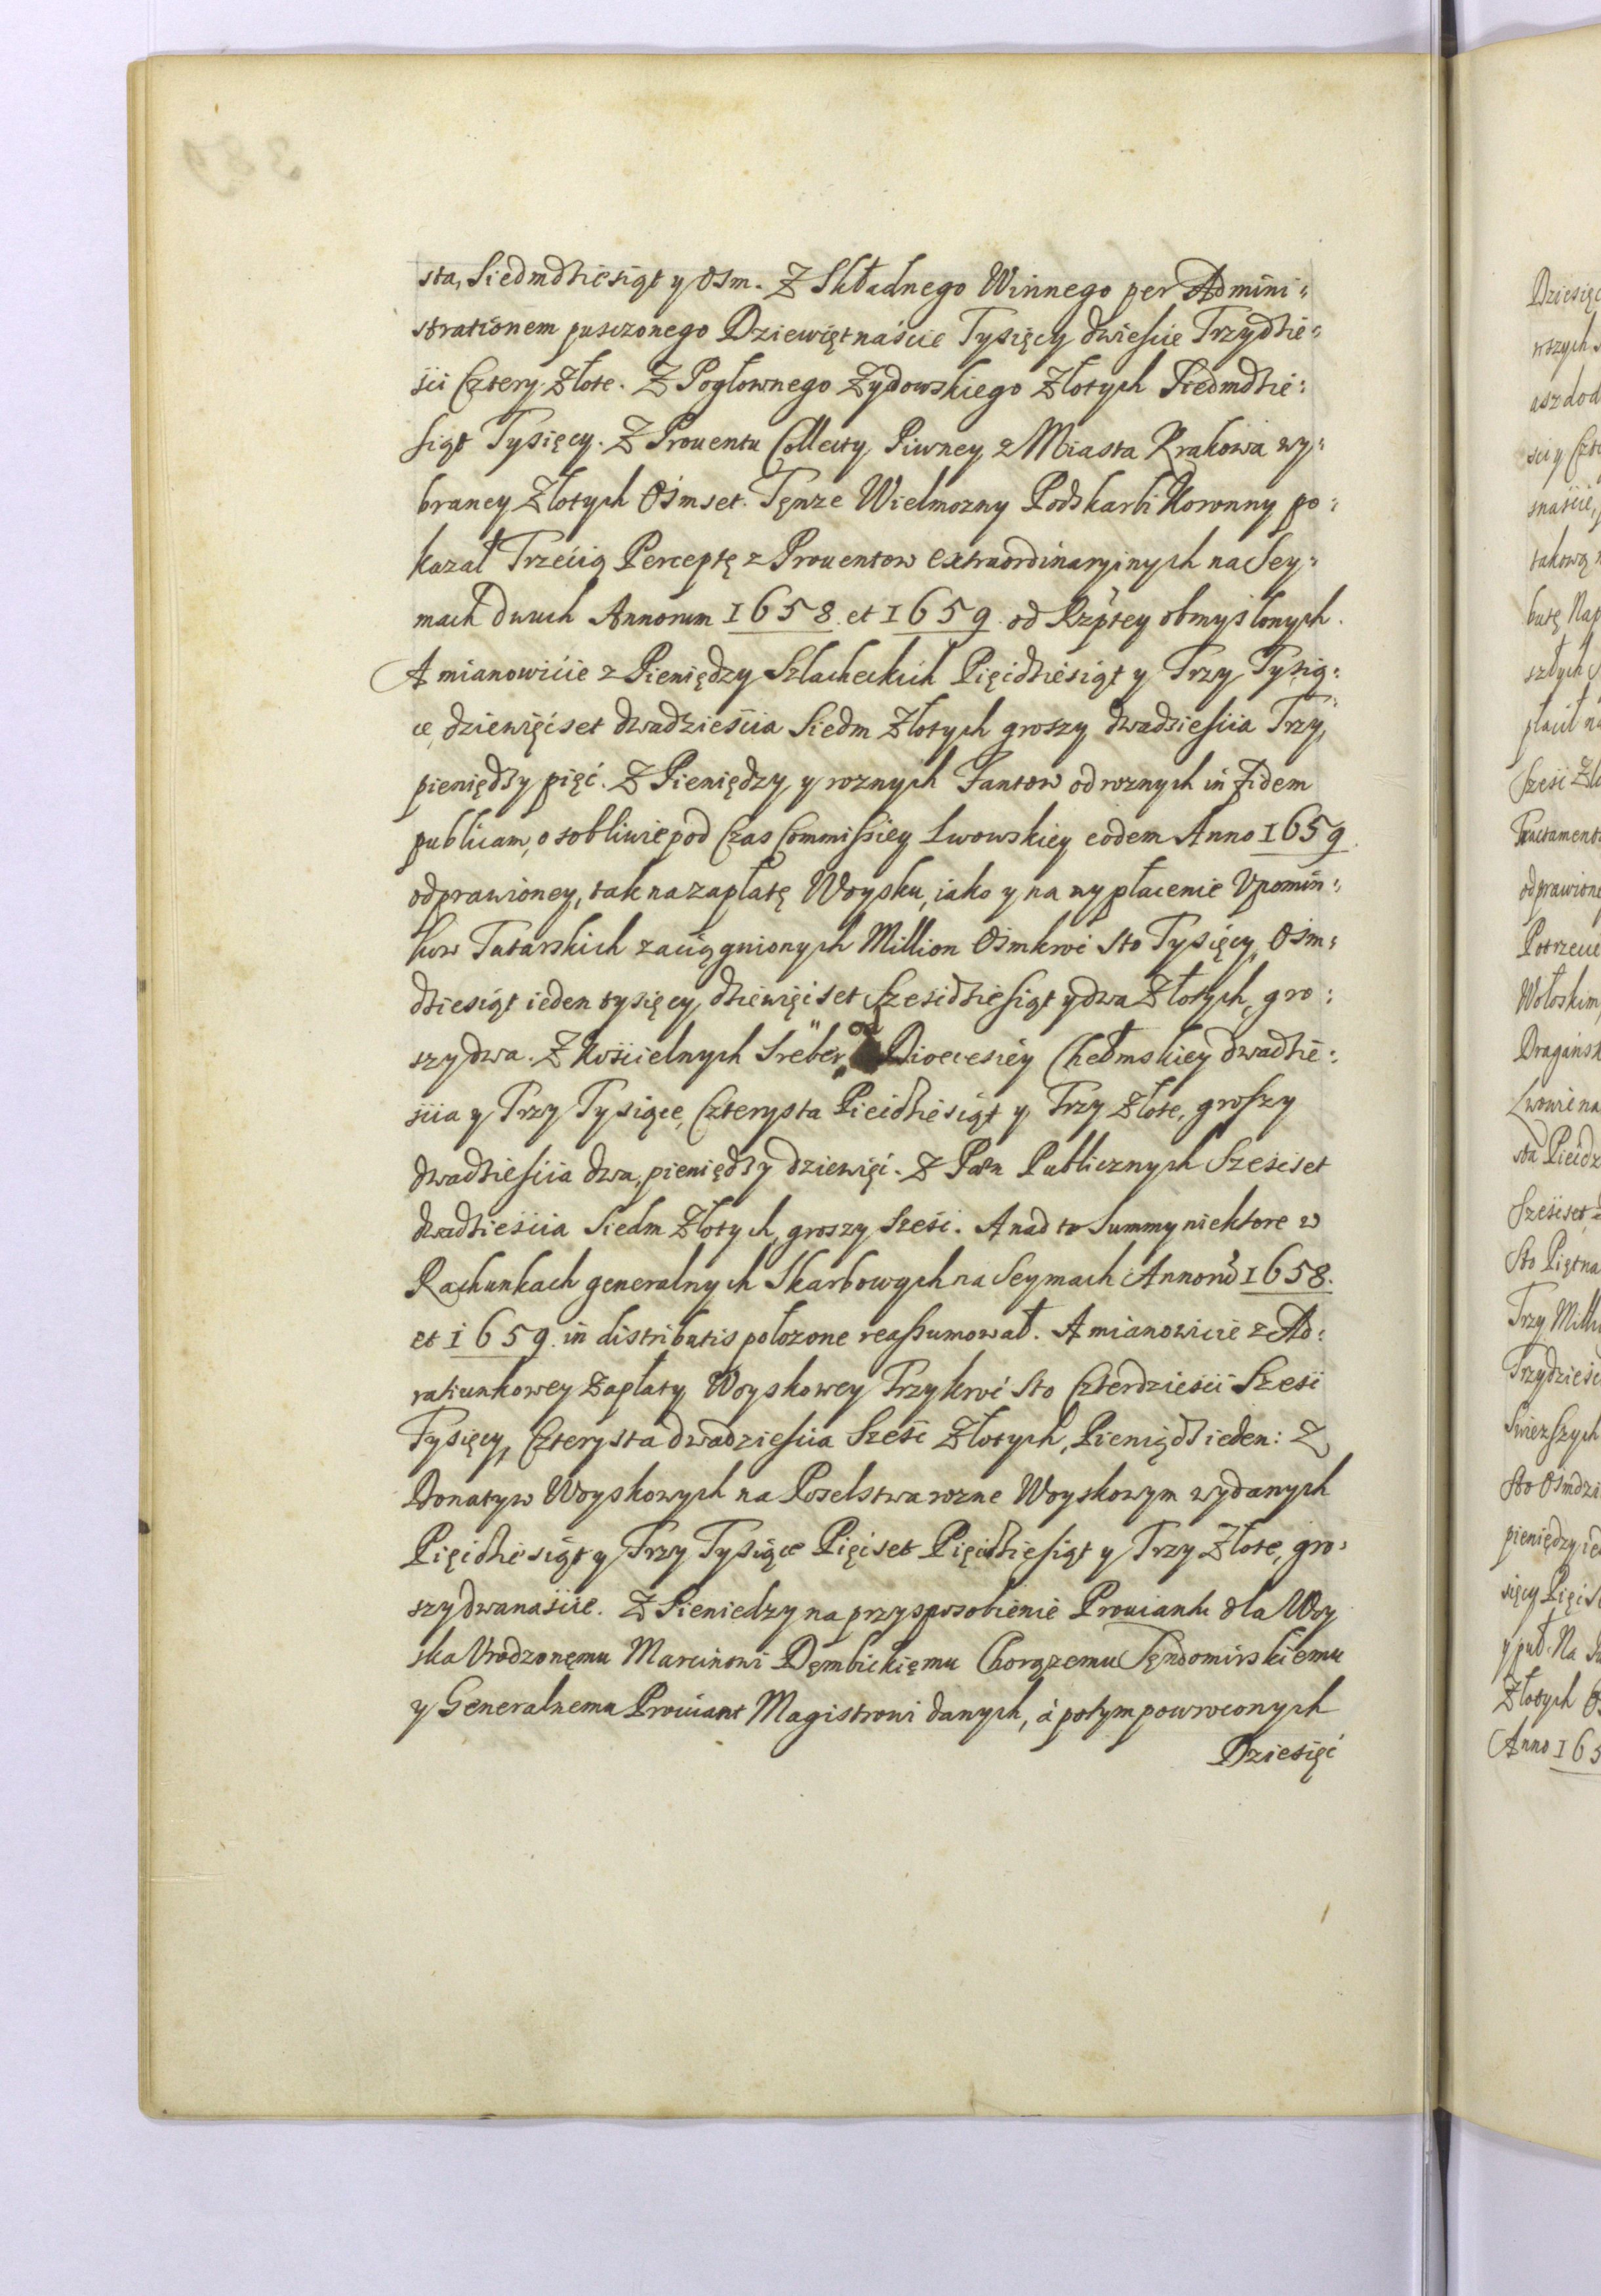 sta, Siedmdziesiąt y Osm. Z Składnego Winnego per Admini:
strationem pusczonego Dziewiętnaście Tysięcy dwieście Trzydzie:
ści Cztery Złote. Z Pogłownego Zydowskiego Złotych Siedmdzie:
siąt Tysięcy. Z Prouentu Collecty Piwney z Miasta Krakowa wy:
braney Złotych Ośmset. Tenze Wielmozny Podskarbi Koronny po:
kazał Trzecią Perceptę z Prouentow extraordinaryinych na Sey:
mach dwuch Annorum 1658. et 1659. od Rzptey obmyślonych.
A mianowicie z Pieniędzy Szlacheckich Pięćdziesiąt y Trzy Tysią:
ce, dziewięćset dwadzieścia Siedm Złotych groszy dwadzieścia Trzy,
pieniędzy pięć. Z Pieniędzy y roznych Fantow od roznych in Fidem
publicam, osobliwie pod Czas Commissiey Lwowskiey eodem Anno 1659
odprawioney, tak na zapłatę Woysku, iako y na wypłacenie Upomin:
kow Tatarskich zaciągnionych Million Ośmkroć sto Tysięcy, Ośm:
dziesiąt ieden tysięcy, dziewięćset Sześćdziesiąt y dwa Złotych, gro:
szy dwa. Z Kościelnych Sreber od Dioecesiey Chełmskiey dwadzie:
ścia y Trzy Tysiące, Czterysta Pięćdziesiąt y Trzy Złote, groszy
dwadzieścia dwa, pieniędzy dziewięć. Z Publicznych Sześćset
dwadzieścia Siedm Złotych, groszy Sześć. A nad to Summy niektore w
Rachunkach generalnych Skarbowych na Seymach Annorũ 1658.
et 1659. in distributis połozone reassumował. A mianowicie z Ad:
ratiunkowey Zapłaty Woyskowey Trzykroć sto Czterdzieści Sześć
Tysięcy, Czterysta dwadzieścia Sześć Złotych, Pieniądz ieden: Z
Donatyw Woyskowych na Poselstwa rozne Woyskowym wydanych
Pięćdziesiąt y Trzy Tysiące Pięćset Pięćdziesiąt y Trzy Złote, gro:
szy dwanaście. Z Pieniedzy na przysposobienie Prouiantu dla Woy
ska Urodzonemu Marcinowi Dęmbickiemu Chorązemu Sendomirskiemu
y Generalnemu Prouiant Magistrowi danych, á potym powroconych
Dziesięć